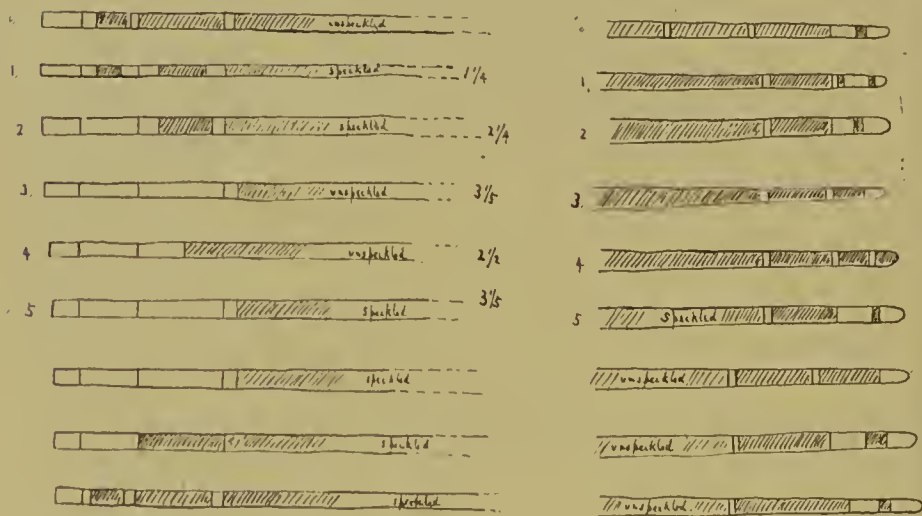 unspeckled
1. speckled 1 1/4 1.
2 speckled 2 1/4 2
3. unspeckled 3 1/5 3.
4 unspeckled 2 1/2 4
5 speckled 3 1/5 5 Speckled
speckled unspeckled
speckled unspeckled
speckled unspeckled